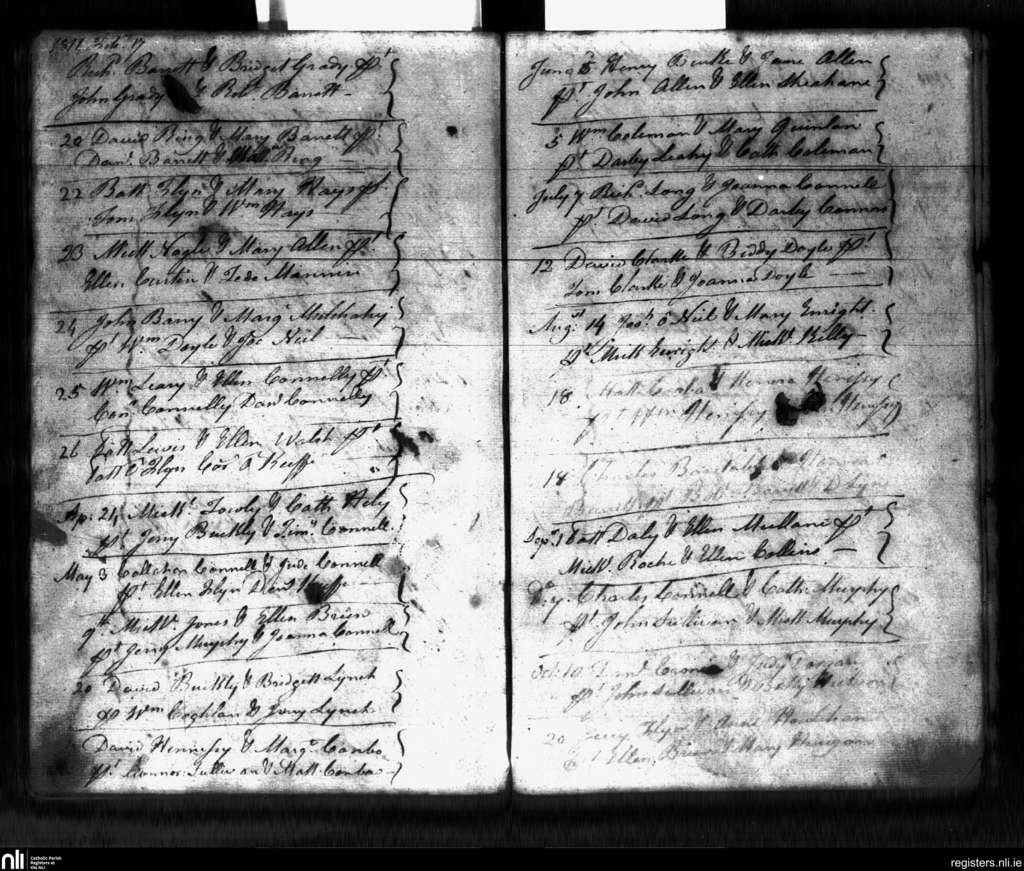 1811 Feb. 17
Rich. Barrett & Bridget Grady pt
John Grady & Rob. Barrett
20 David Ring & Mary Barrett pt
Dan. Barrett & Ring
22 Batt Flyn & Mary Hays pt
Tom Flyn & Wm Hays
23 Mick Nagle & Mary Allen pt
Ellen Curtin & Tede
24 John Barry & Marg.
pt Wm Doyle & Joe Neil
25 Wm Leary & Ellen Connelly pt
Con. Connelly Dan Connelly
26 Patt Lewis & Ellen Walsh pt
Patt Flyn Cor O Keeffe
Ap. 24 Mick. Towly & Cath Hely
pt Jerry Buckly & Tim. Connell
May 3 Callahan Connell & Jude Connell
pt Ellen Flyn Dan
9 Mick. Jones & Ellen Brien
pt Jerry Murphy & Joanna Connell
20 David Buckly & Bridgett Lynch
pt Wm Coghlan & Jerry Lynch
David Hennesy & Marg. Conbo
pt Connor Sullivan & Matt Conbo
June 5 Henry Burke & Jane Allen
pt John Allen & Ellen Sheahane
5 Wm Coleman & Mary Quinlan
pt Darby Leahy & Cath Coleman
July 7 Rich. Long & Joanna Connell
pt David Long & Darby Connor
12 David Clarke & Biddy Doyle pt
Tom Clarke & Joanna Doyle
Augst 14 Jos. o Neil & Mary Enright
pt Mick Enright & Mick. Kelly
18 Matt & Honora Hennesy
pt Wm Hennesy Hennesy
18 Charles &
pt Rob. Barrett
Sep. 1 Patt Daly & Ellen Mullane pt
Mick. Roche & Ellen Collins
Do. 7. Charles Connell & Cath. Murphy
pt John Sullivan & Mick Murphy
Oct. 10 & Judy
pt John Sullivan & Betty
20 Jerry Flyn &
pt Ellen Brien & Mary
nli
Catholic Parish
Registers at
the NLI
registers.nli.ie